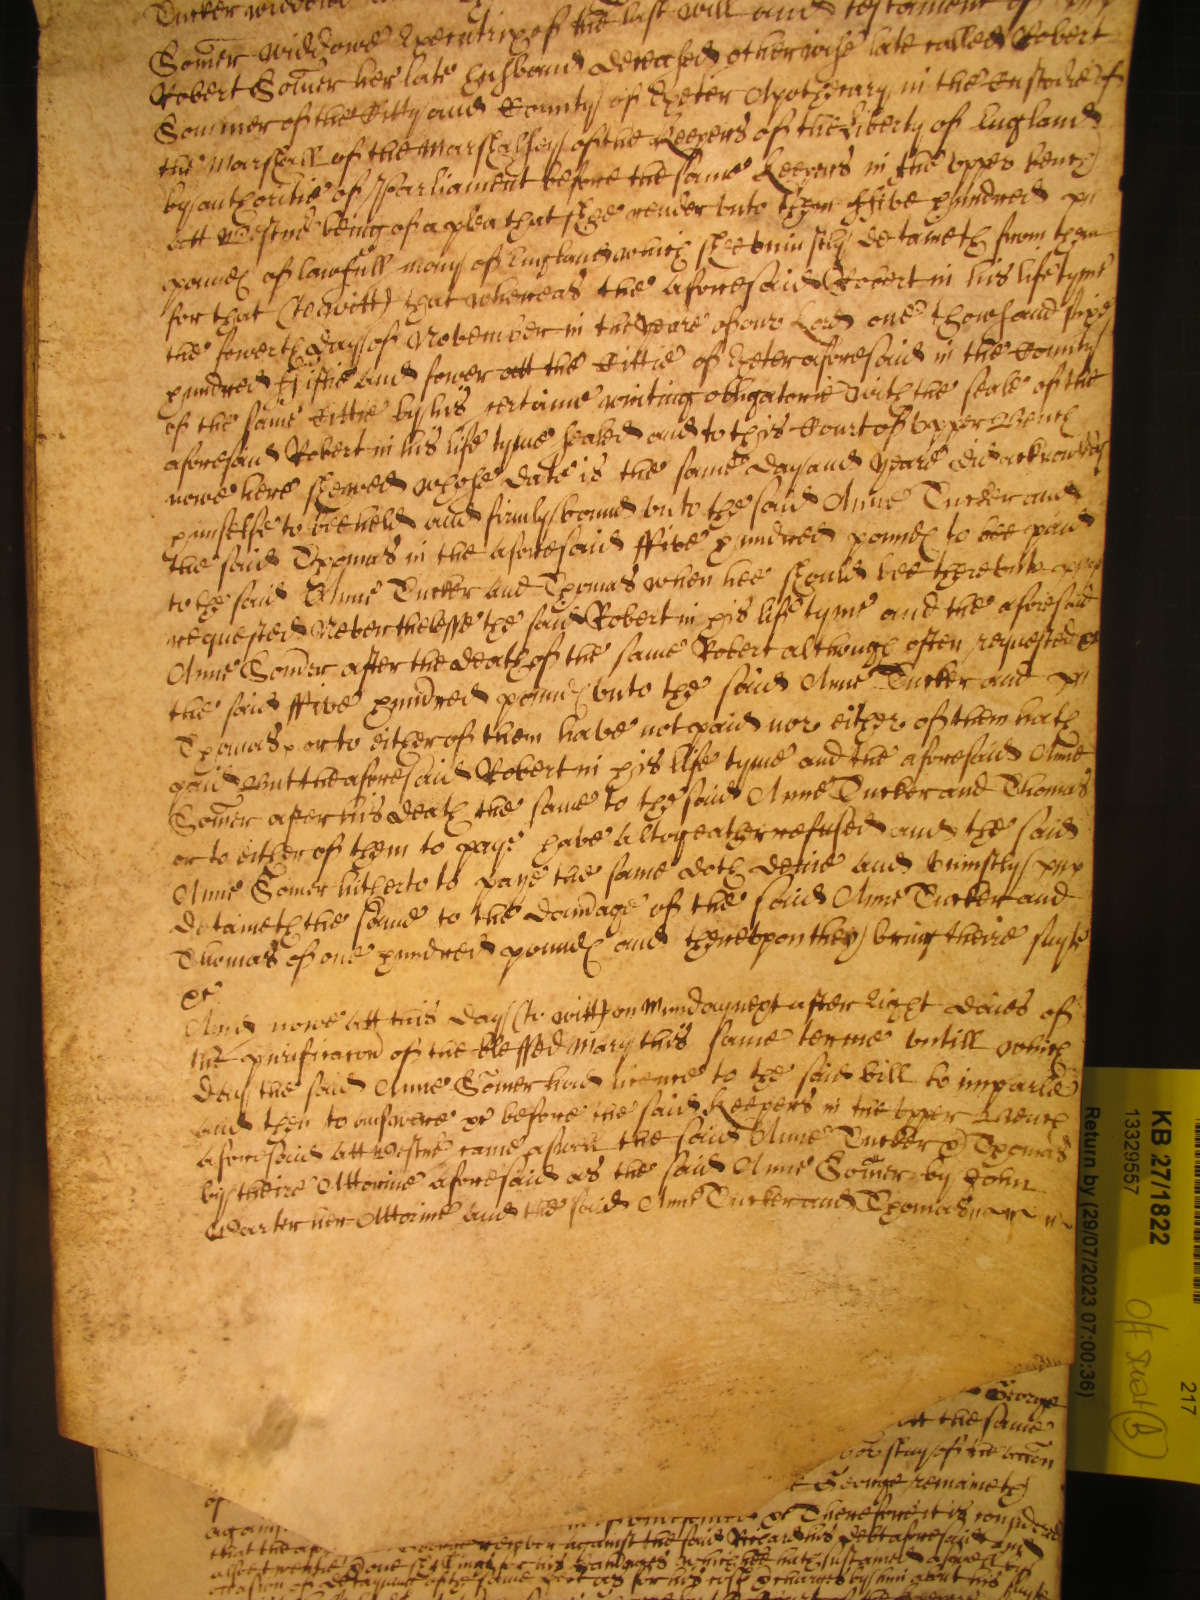 Tucker widdowe
Somer widdowe Executrix of the last will and testament of
Robert Somer her late husband deceased otherwise late called Robert
Sommer of the Citty and County of Exeter Apothecary in the Custodie of
the Marshall of the Marshalsey of the Keepers of the Liberty of England
by authoritie of Parliament before the same Keepers in the upper bench
att Westmr being of a plea that shee render unto them ffive hundred
pounds of lawfull mony of England which shee uniustly detaineth from them
for that (to witt) that whereas the aforesaid Robert in his life tyme
the fowerth day of November in the yeare of our Lord one thousand sixe
hundred ffiftie and fower att the Cittie of Exeter aforesaid in the County
of the same Cittie by his certaine writing obligatorie with the seale of the
aforesaid Robert in his life tyme sealed and to this Court of Upper Bench
nowe here shewed whose date is the same day and yeare did acknowledge
himselfe to bee held and firmly bound unto the said Anne Tucker and
the said Thomas in the aforesaid ffive hundred pounds to bee paid
to the said Anne Tucker and Thomas when hee should bee thereunto
requested Neverthelesse the said Robert in his life tyme and the aforesaid
Anne Somer after the death of the same Robert although often requested
the said ffive hundred pounds unto the said Anne Tucker and
Thomas or to either of them have not paid nor either of them hath
paid But the aforesaid Robert in his life tyme and the aforesaid Anne
Somer after his death the same to the said Anne Tucker and Thomas
or to either of them to paye have altogeather refused and the said
Anne Somer hitherto to paye the same doth denie and uniustly
detaineth the same to the damage of the said Anne Tucker and
Thomas of one hundred pounds and thereupon they bring theire suyte
&c
And nowe att this day (to witt) on Munday next after Eight daies of
the purificacon of the blessed Mary this same terme untill which
day the said Anne Somer had licence to the said bill to imparle
and then to answere &c before the said Keepers in the upper Bench
aforesaid att Westmr came aswell the said Anne Tucker & Thomas
by theire Attornie aforesaid as the said Anne Somer by John
Carter her Attornie and the said Anne Tucker and Thomas
George
att the same
stay of the
George remaineth
&c Therefore it is considered
that the recover against the said Richard his debt aforesaid and
for his damages which hee hath sustained aswell by
occasion of detayning of the same debt as for his costs & charges by him about his suyte
KB 27/1822
13329557
Return by (29/07/2023 07:00:36)
217
Off Seat B